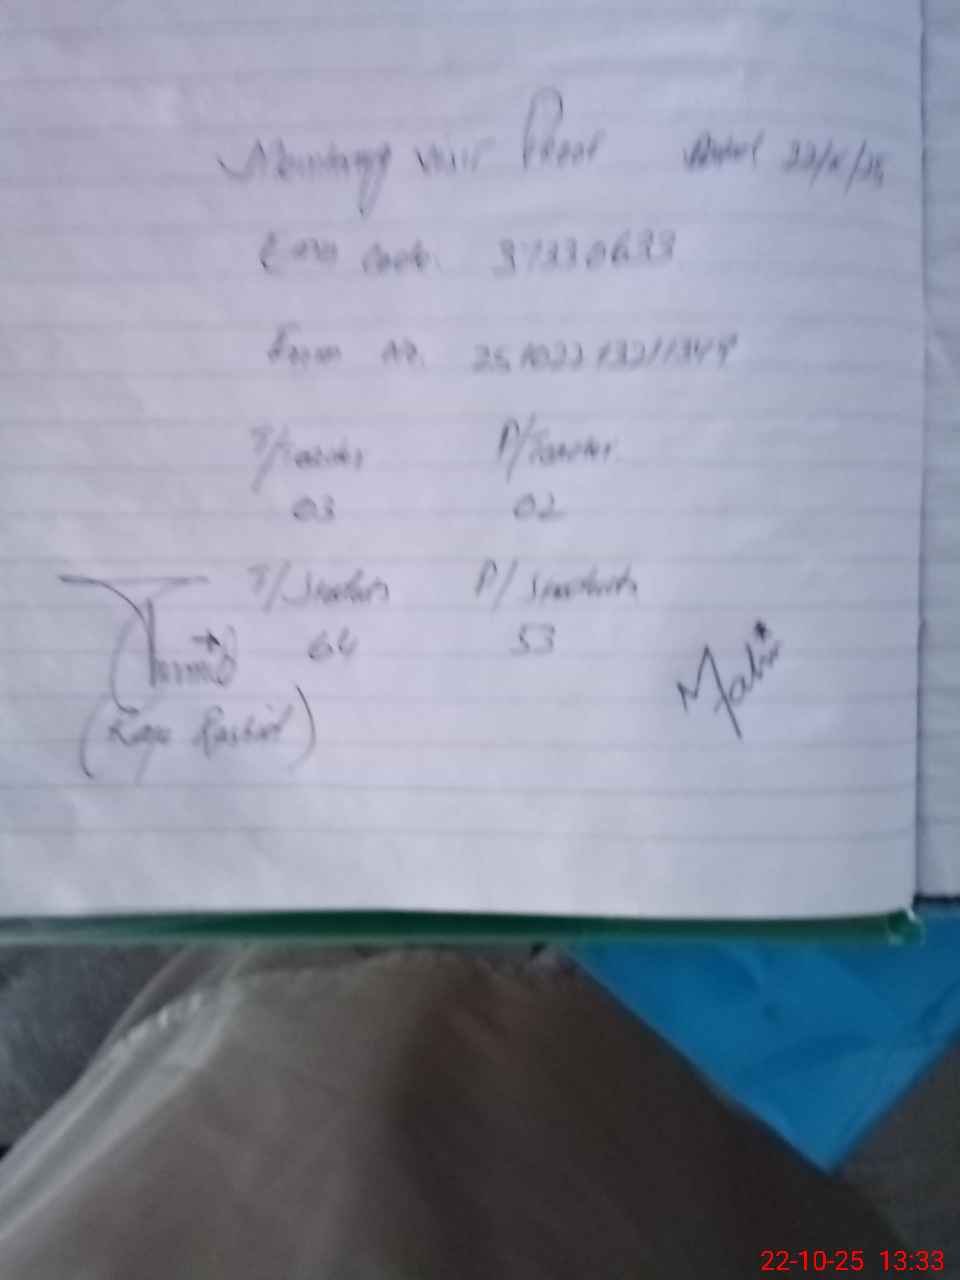 Visit Proof Dated 22/10/25
Emis Code. 37330633
Form No. 25102213211349
T/Teacher P/Teacher
03 02
T/Students P/Students
64 53
(Raja Rashid)
22-10-25 13:33